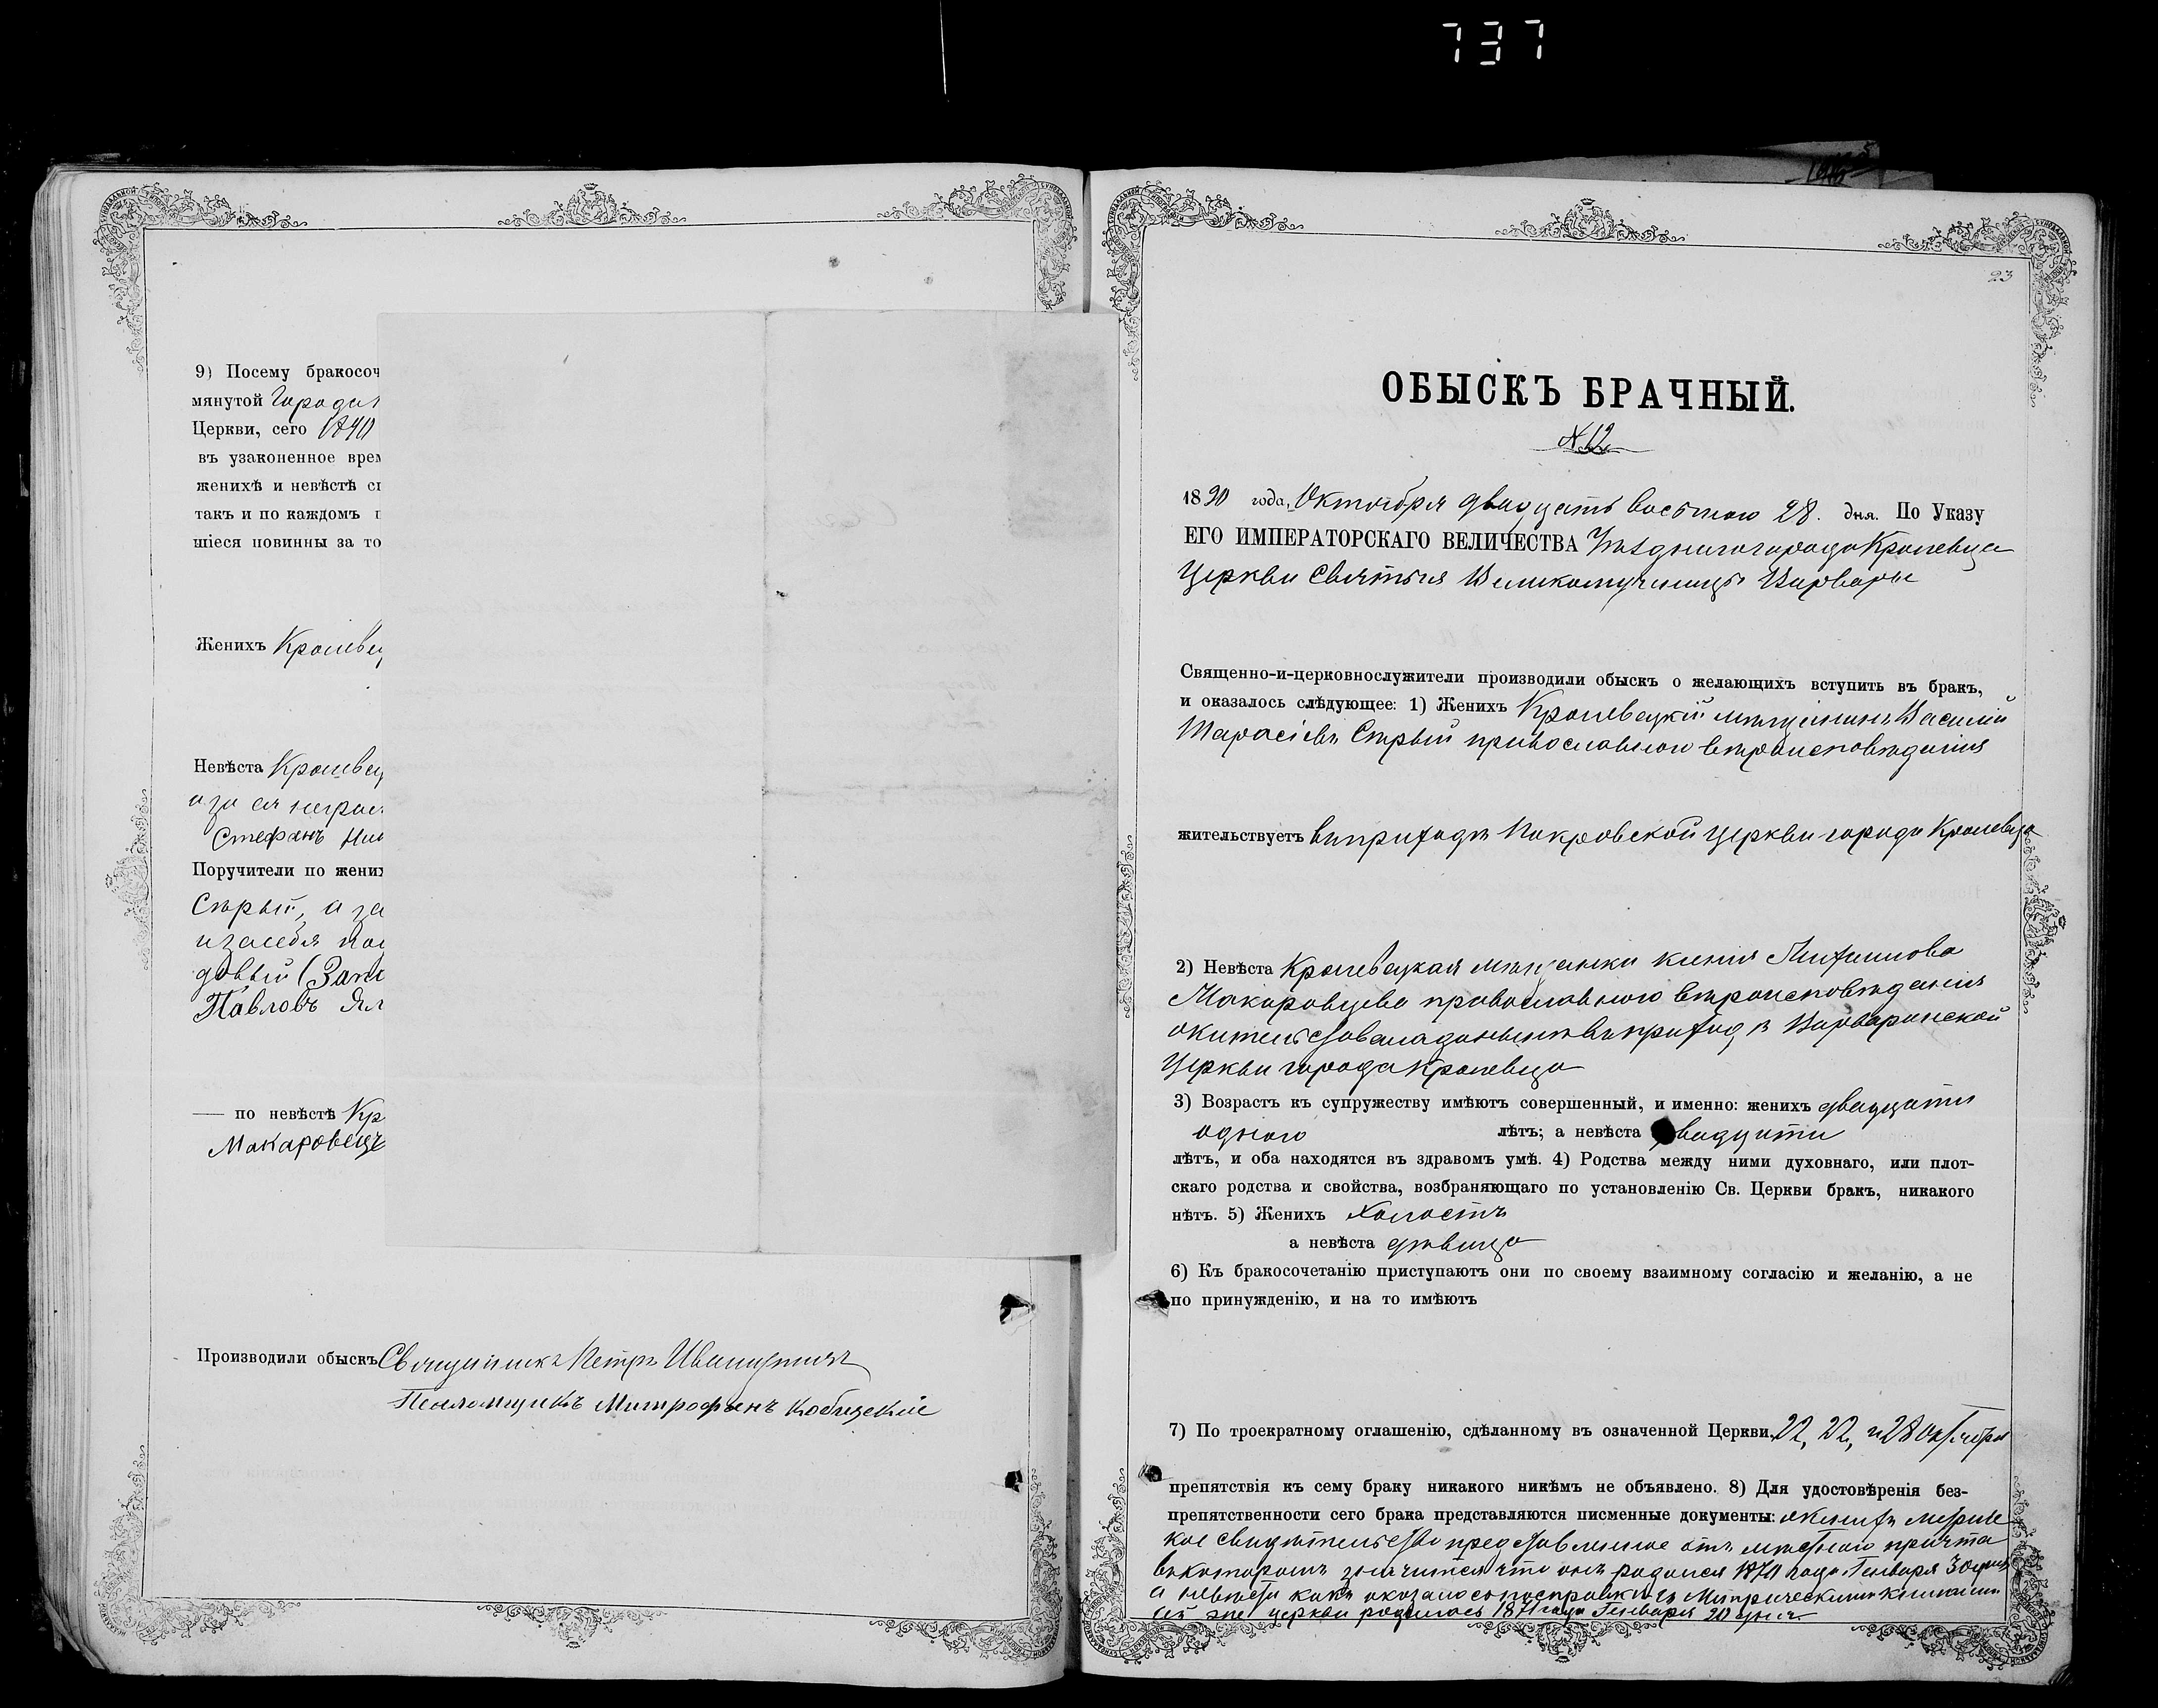 737
9) Посему бракосоч
мянутой Городи
Церкви, сего 1890
въ узаконенное врем
женихѣ и невѣстѣ сп
такъ и по каждомъ п
шіеся повинны за то
Женихъ Кролевец
Невѣста Кролевец
а за ея неграм
Стефанъ
Поручители по жених
Сѣрый, а за
и за себя
довый (Запи
Павловъ
— по невѣстѣ Кр
Макаровецъ
Производили обыскъ Священникъ Петръ
Псаломщикъ Митрофанъ Кобызскій
23
ОБЫСКЪ БРАЧНЫЙ.
№ 12
1890 года, Октября двадцать восьмого 28. дня. По Указу
ЕГО ИМПЕРАТОРСКАГО ВЕЛИЧЕСТВА Уѣзднаго города Кролевца
Церкви Святыя Великомученицы Варвары
Священно-и-церковнослужители производили обыскъ о желающихъ вступить въ бракъ,
и оказалось слѣдующее: 1) Женихъ Кролевецкій мѣщанинъ Василій
Тарасіевъ Сѣрый православного вѣроисповѣданія
жительствуетъ въ приходѣ Покровской церкви города Кролевца
2) Невѣста Кролевецкая мѣщанка Ксенія
Макаровцева православного вѣроисповѣданія
жительствовала донынѣ въ приходѣ Варваринской
церкви города Кролевца
3) Возрастъ къ супружеству имѣютъ совершенный, и именно: женихъ двадцати
одного лѣтъ; а невѣста двадцати
лѣтъ, и оба находятся въ здравомъ умѣ. 4) Родства между ними духовнаго, или плот-
скаго родства и свойства, возбраняющаго по установленію Св. Церкви бракъ, никакого
нѣтъ. 5) Женихъ холостъ
а невѣста дѣвица
6) Къ бракосочетанію приступаютъ они по своему взаимному согласію и желанію, а не
по принужденію, и на то имѣютъ
7) По троекратному оглашенію, сдѣланному въ означенной Церкви, 22, 22, и 28 октября
препятствія къ сему браку никакого никѣмъ не объявлено. 8) Для удостовѣренія без-
препятственности сего брака представляются писменные документы: о женихѣ метриче
кое свидѣтельство представленное отъ мѣстного причта
въ которомъ значится что онъ родился 1870 года Генваря 30 дня
а невѣста какъ оказалось по справки съ Метрическими книгами
сей же церкви родилась 1871 года Генваря 20 дня